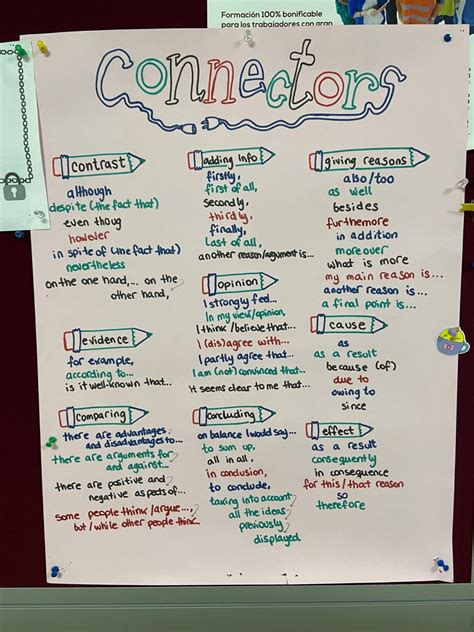 Formación 100% bonificable
para los trabajadores con gran
Connectors
contrast
although
despite (the fact that)
even thoug
however
in spite of (the fact that)
nevertheless
on the one hand,... on the
other hand,
adding info
firstly,
first of all,
secondly,
thirdly,
finally,
last of all,
another reason/argument is...
giving reasons
also/too
as well
besides
furthemore
in addition
moreover
what is more
my main reason is...
another reason is...
a final point is...
opinion
I strongly feel...
In my view/opinion,
I think/believe that...
I (dis)agree with...
I partly agree that...
I am (not) convinced that...
It seems clear to me that...
evidence
for example,
according to...
is it well-known that...
cause
as
as a result
because (of)
due to
owing to
since
comparing
there are advantages
and disadvantages to...
there are arguments for
and against...
there are positive and
negative aspects of...
some people think/argue...,
but/while other people think...
concluding
on balance I would say...
to sum up,
all in all,
in conclusion,
to conclude,
taking into account
all the ideas
previously
displayed
effect
as a result
consequently
in consequence
for this/that reason
so
therefore